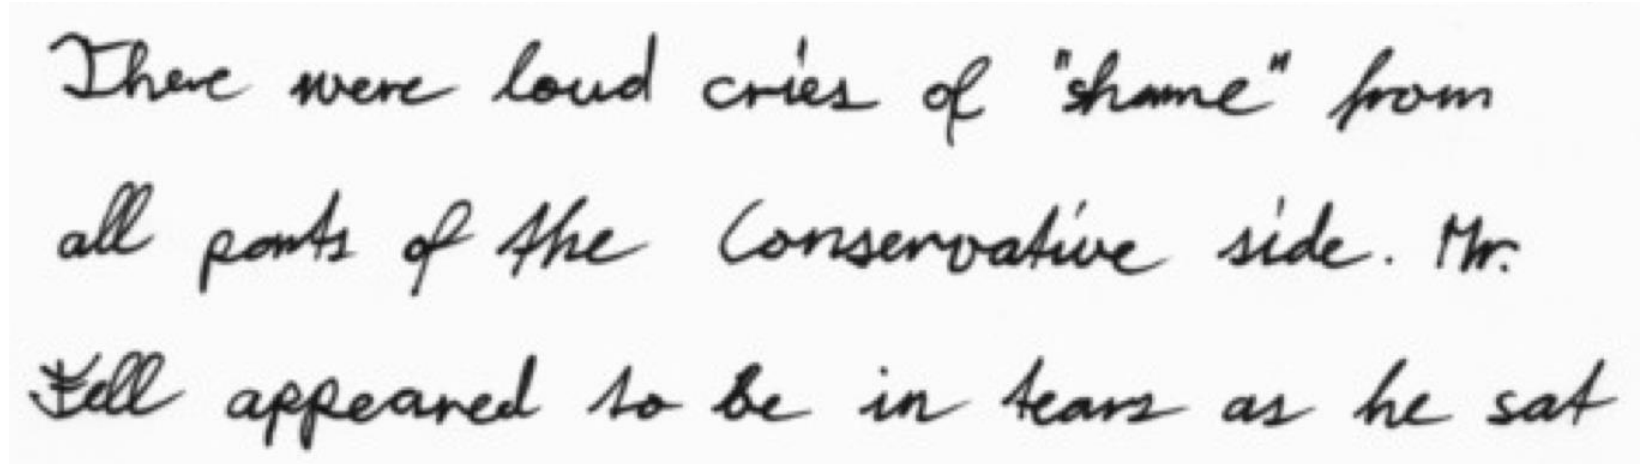 There were loud cries of "shame" from
all parts of the Conservative side. Mr.
Fell appeared to be in tears as he sat